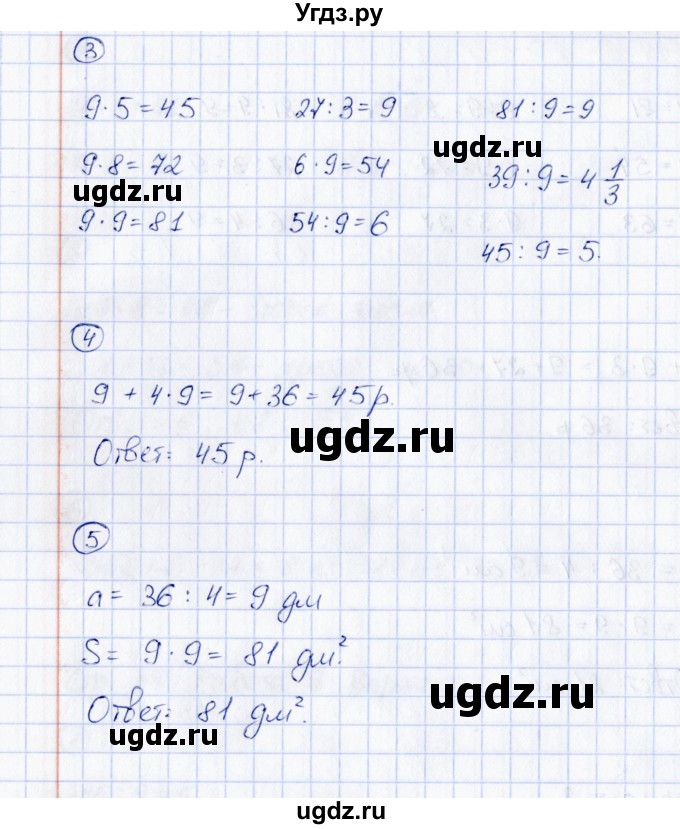 Угдз.ру
3
9·5=45 27:3=9 81:9=9
9·8=72 6·9=54 39:9=4 1/3
ugdz.ru ugdz.ru
9·9=81 54:9=6
45:9=5.
4
9+4·9=9+36=45р.
ugdz.ru
Ответ: 45р.
5
a=36:4=9 дм
S=9·9=81 дм².
ugdz.ru
Ответ: 81 дм².
ugdz.ru
ugdz.ru